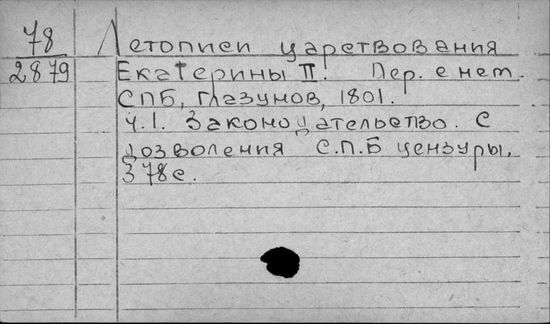 78 Летописи царствования
2879 Екатерины II. Пер. с нем.
СПБ, Глазунов, 1801.
ч.1. Законодательство. С
дозволения С.П.Б цензуры.
378с.